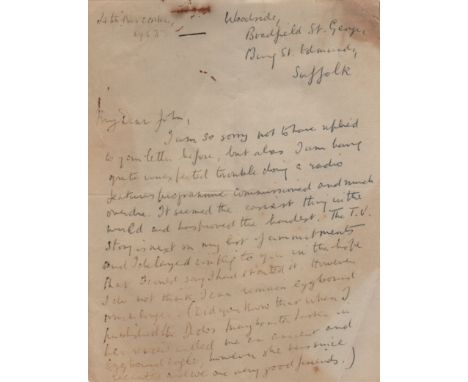 Woodside,
Bradfield St. George,
Bury St. Edmunds,
Suffolk
My Dear John,
I am so sorry not to have replied
to your letter before, but alas I am having
quite unexpected trouble doing a radio
features programme commissioned and much
overdue. It seemed the easiest thing in the
world and has proved the hardest. The T.V.
Story is next on my list of commitments
and I delayed writing to you in the hope
that I could say I had started it. However
I do not think I can remain eggbound
much longer. (Did you know that when I
published The Ides
her review called me an ancient and
eggbound eagle, however she has since
and we are very good friends.)